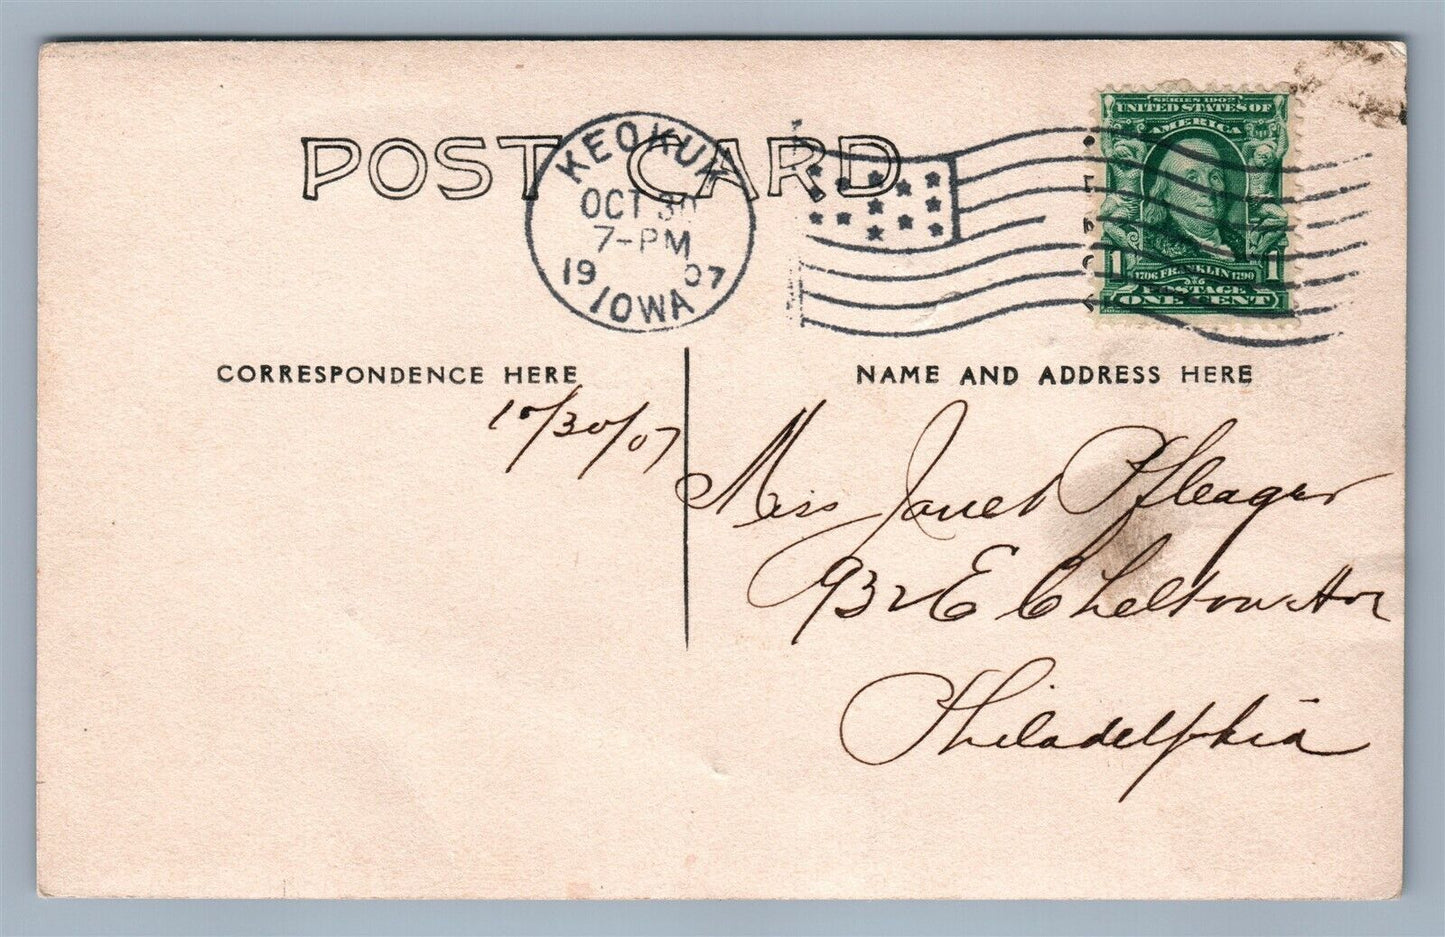 POST CARD
KEOKUK
OCT 30
7-PM
19 07
IOWA
SERIES 1902
UNITED STATES OF
AMERICA
1 1706 FRANKLIN 1790 1
POSTAGE
ONE CENT
CORRESPONDENCE HERE
NAME AND ADDRESS HERE
10/30/07
Miss Janet Pfleager
932 E Chelton Ave
Philadelphia